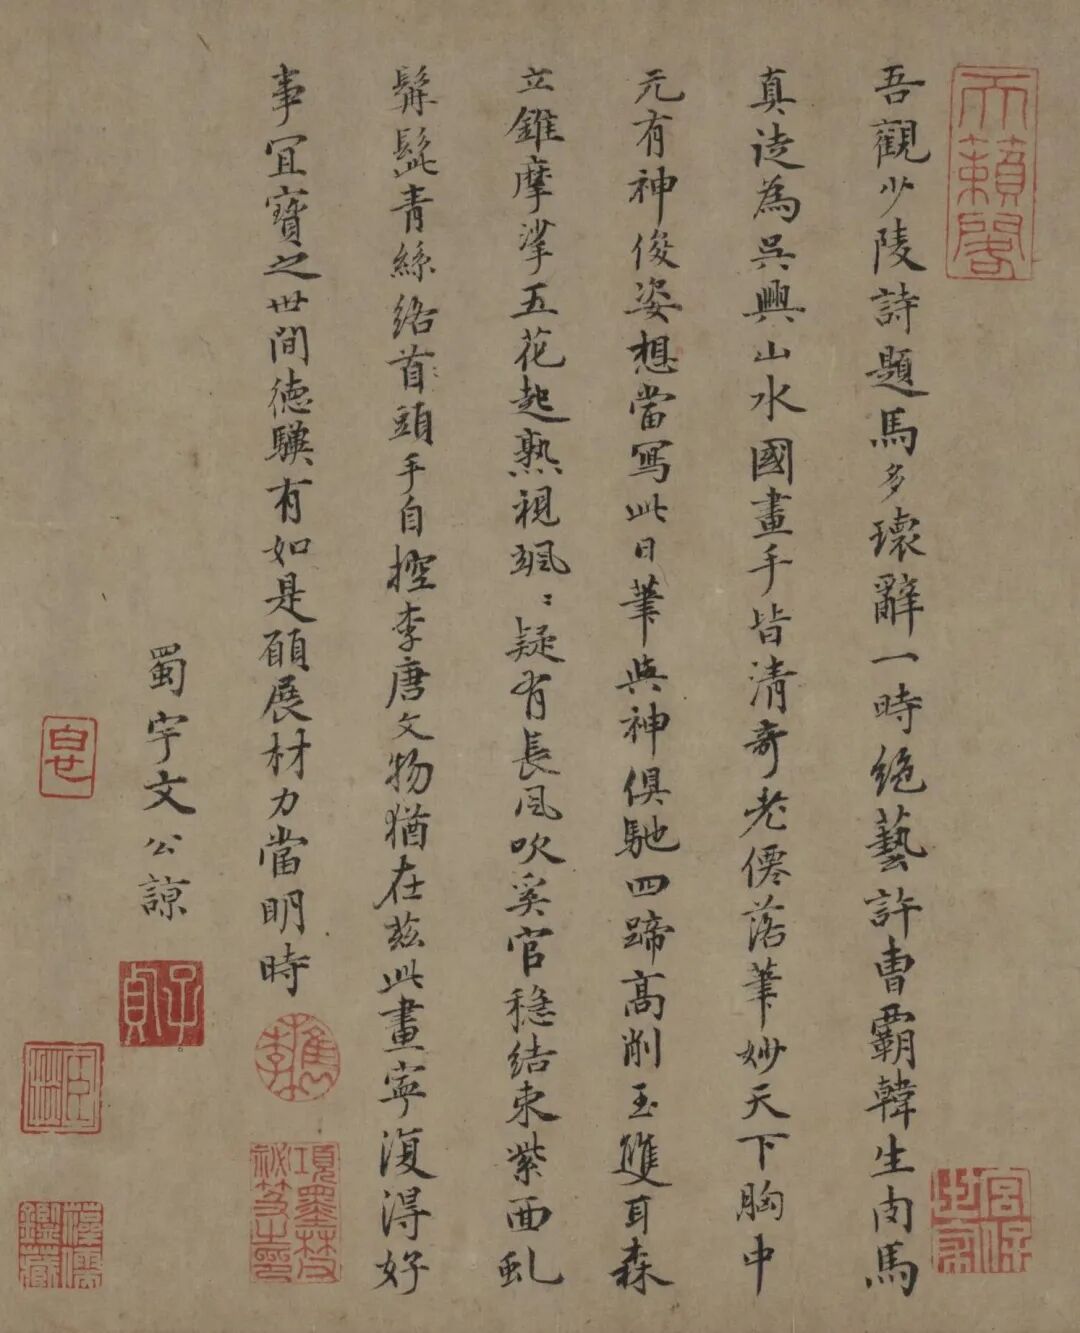 天籟閣
吾觀少陵詩題馬多瓌辭一時絕藝許曹霸韓生肉馬
宮保世家
真徒為吳興山水國畫手皆清奇老僊落筆妙天下胸中
元有神俊姿想當寫此日筆與神俱馳四蹄高削玉雙耳森
立錐摩挲五花起熟視颯〻疑有長風吹奚官穩結束紫面虬
髯髭青絲絡首頭手自控李唐文物猶在茲此畫寧復得好
事宜寶之世間德驥有如是願展材力當明時
檇李
項墨林父祕笈之印
蜀宇文公諒
子貞